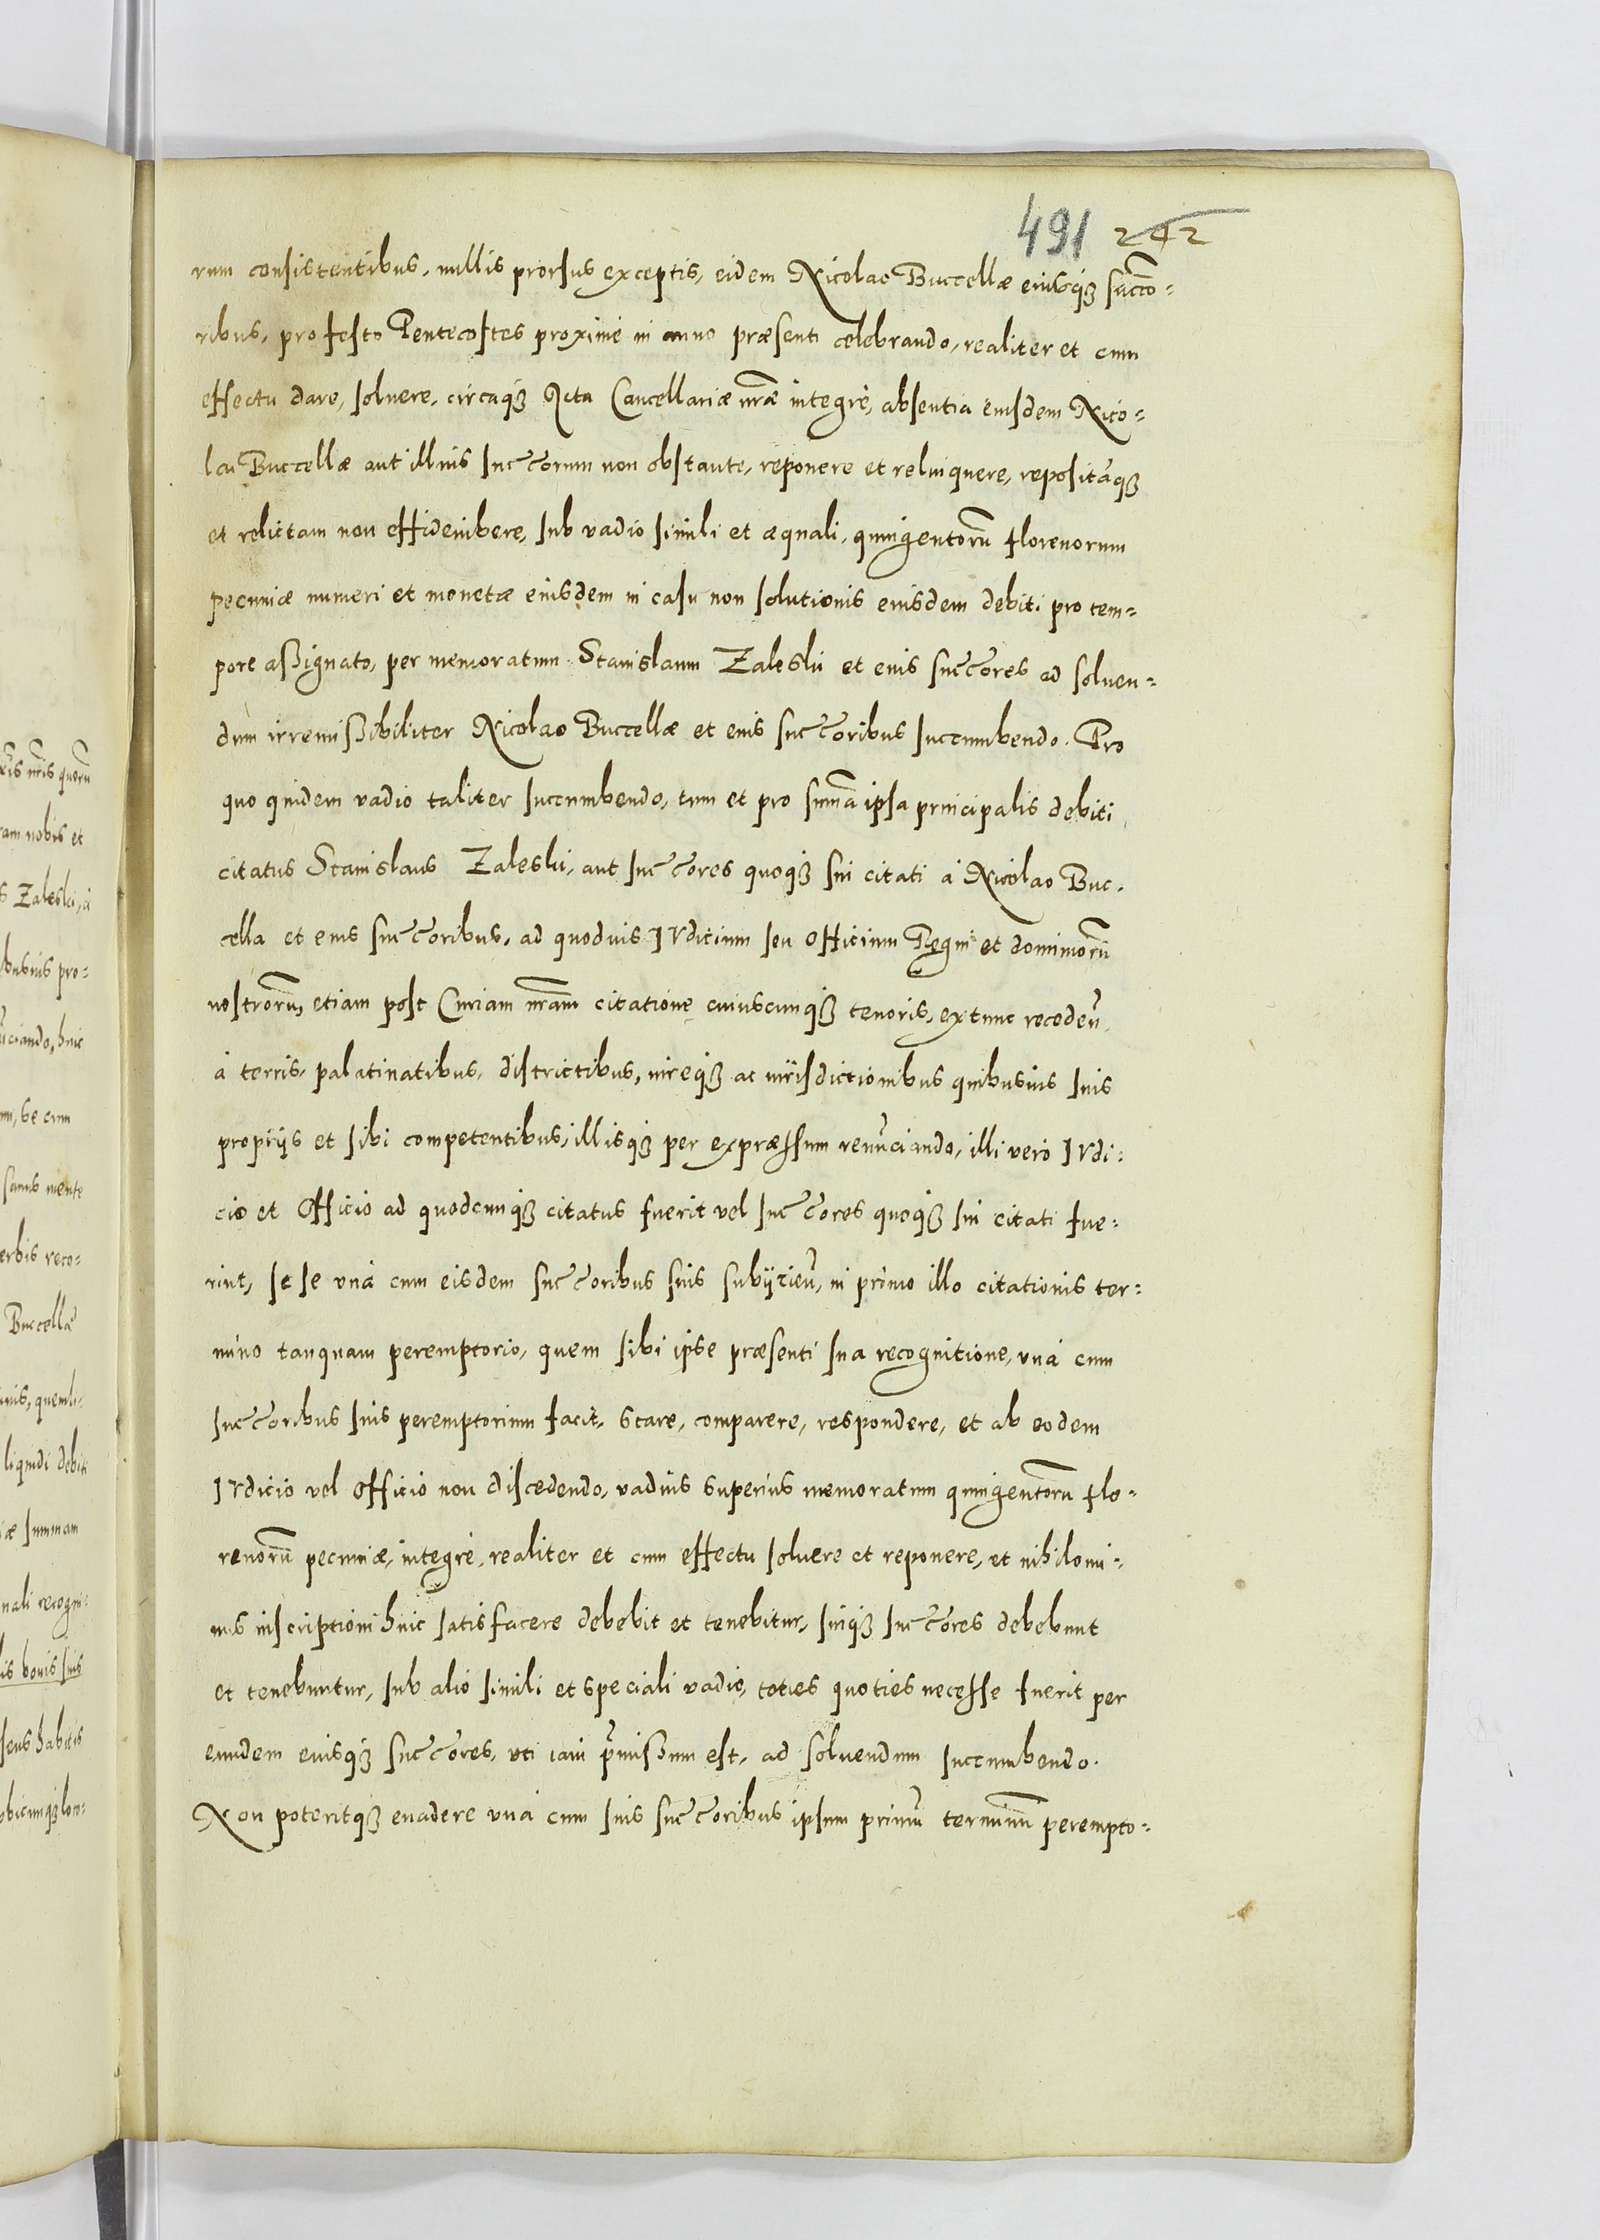 491 242
rum consistentibus, nullis prorsus exceptis, eidem Nicolao Buccellæ eiusq₃ succo-
ribus, pro festo Pentecostes proximè in anno præsenti celebrando, realiter et cum
effectu dare, soluere, circaq₃ Acta Cancellariæ nr̃æ integrè, absentia eiusdem Nico-
lai Buccellæ aut illius succorum non obstante, reponere et relinquere, repositãq₃
et relictam non
 sub vadio simili et æquali, quingentorũ florenorum
pecuniæ numeri et monetæ eiusdem in casu non solutionis eiusdem debiti pro tem-
pore aßignato, per memoratum Stanislaum Zaleski et eius succores ad soluen-
dum irremißibiliter Nicolao Buccellæ et eius succoribus succumbendo. Pro
quo quidem vadio taliter succumbendo, tum et pro sum̃a ipsa principalis debiti
citatus Stanislaus Zaleski, aut succores quoq₃ sui citati à Nicolao Buc-
cella et eius succoribus, ad quoduis Iudicium seu Officium Regni et dominiorũ
nostrorũ, etiam post Curiam nr̃am citatione cuiuscunq₃ tenoris, extunc recedeñ
à terris, palatinatibus, districtibus, iureq₃ ac iurisdictionibus quibusuis suis
proprijs et sibi competentibus, illisq₃ per expræssum renũciando, illi verò Iudi-
cio et Officio ad quodcunq₃ citatus fuerit vel succores quoq₃ sui citati fue-
rint, se se vnà cum eisdem succoribus suis subijcieñ, in primo illo citationis ter-
mino tanquam peremptorio, quem sibi ipse præsenti sua recognitione, vnà cum
succoribus suis peremptorium facit, stare, comparere, respondere, et ab eodem
Iudicio vel Officio non discedendo, vadium superius memoratum quingentorũ flo-
renorũ pecuniæ, integrè, realiter et cum effectu soluere et reponere, et nihilomi-
nus inscriptioni huic satisfacere debebit et tenebitur, suiq₃ succores debebunt
et tenebuntur, sub alio simili et speciali vadio, toties quoties necesse fuerit per
eundem eiusq₃ succores, vti iam p̃mißum est, ad soluendum succumbendo.
Non poteritq₃ euadere vnà cum suis succoribus ipsum primũ terminũ perempto-